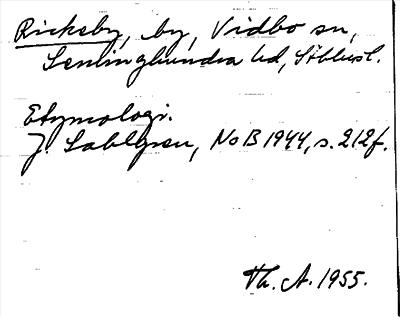 Ricksby, by, Vidbo sn,
Seminghundra hd, Sthlmsl.
Etymologi.
J. Sahlgren, NoB 1944, s. 212f.
Th. A. 1955.